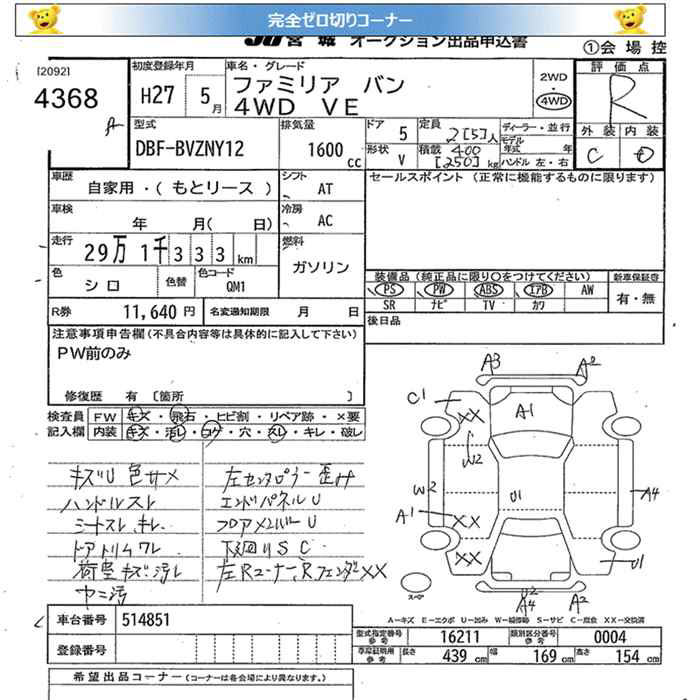 完全ゼロ切りコーナー
JU宮城 オークション出品申込書
①会場控
[2092]
4368
A
初度登録年月
H27 5月
車名・グレード
ファミリア バン
4WD VE
2WD
4WD
評価点
R
外装 内装
C D
型式
DBF-BVZNY12
排気量
1600 cc
ドア
5
定員
2[5]人
形状
V
積載
400
[250]kg
ディーラー・並行
モデル年式 年
ハンドル 左・右
車歴
自家用・(もとリース)
シフト
AT
セールスポイント (正常に機能するものに限ります)
車検
年 月(日)
冷房
AC
走行
29万 1千 333 km
燃料
ガソリン
色
シロ
色替
色コード
QM1
装備品(純正品に限り○をつけてください)
PS PW ABS エアB AW
SR ナビ TV カワ
新車保証書
有・無
R券
11,640円
名変通知期限 月 日
後日品
注意事項申告欄(不具合内容等は具体的に記入して下さい)
PW前のみ
修復歴 有 [箇所 ]
検査員 FW キズ・飛石・ヒビ割・リペア跡・×要
記入欄 内装 キズ・汚レ・コゲ・穴・スレ・キレ・破レ
キズU 色サメ
ハンドルスレ
シートスレ キレ
ドアトリムワレ
荷室キズ汚レ
ヤニ汚
左センタピラー歪み
エンドパネルU
フロアメンバーU
下廻りSC
左Rコーナー、RフェンダXX
A3 A2
C1
XX
A1
W2
W2
U1
A4
A1
XX
XX
U1
U2
A4 A2
スペア
A－キズ E－エクボ U－凹み W－補修跡 S－サビ C－腐食 XX－交換済
車台番号
514851
登録番号
型式指定番号 参考
16211
類別区分番号 参考
0004
車庫証明用 参考
長さ 439 cm
幅 169 cm
高さ 154 cm
希望出品コーナー(コーナーは各会場により異なります。)